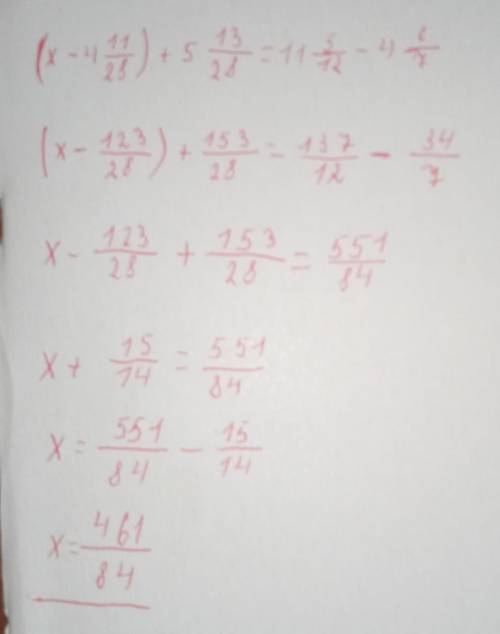 (x - 4 11/28) + 5 13/28 = 11 5/12 - 4 6/7
(x - 123/28) + 153/28 = 137/12 - 34/7
x - 123/28 + 153/28 = 551/84
x + 15/14 = 551/84
x = 551/84 - 15/14
x = 461/84